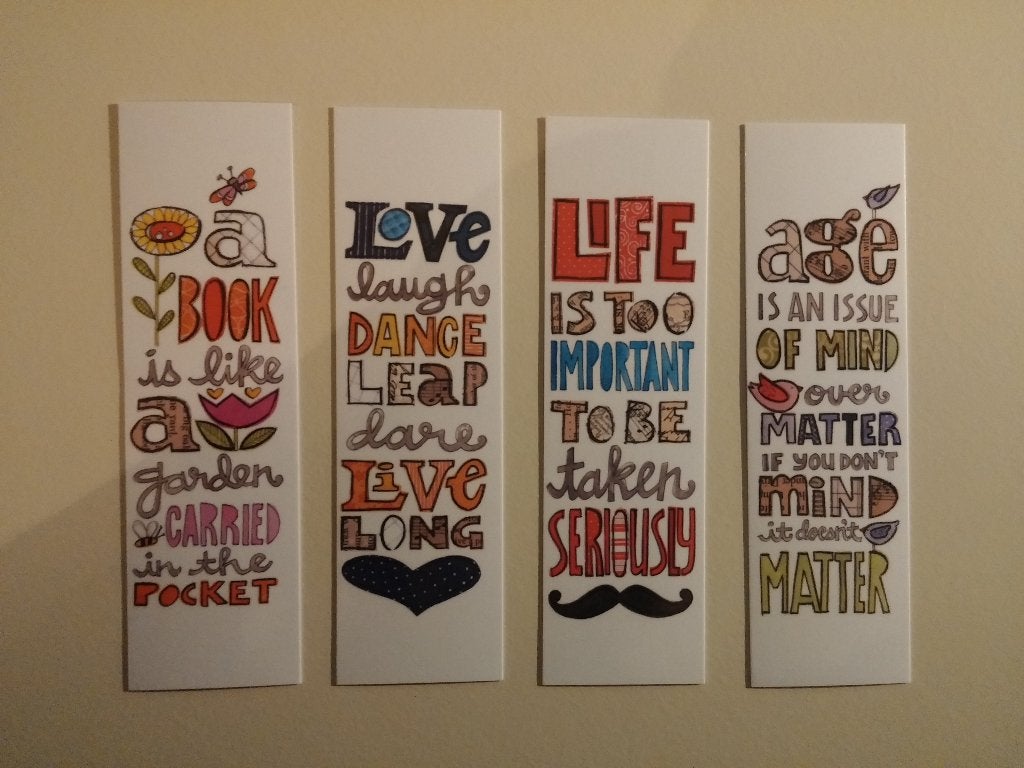 a
BOOK
is like
a
garden
CARRIED
in the
POCKET
LOVe
laugh
DANCE
LEaP
dare
LiVe
LONG
LiFE
IS TOO
IMPORTANT
TO BE
taken
SERIOUSLY
age
IS AN ISSUE
OF MIND
over
MATTER
IF YOU DON'T
miND
it doesn't
MATTER